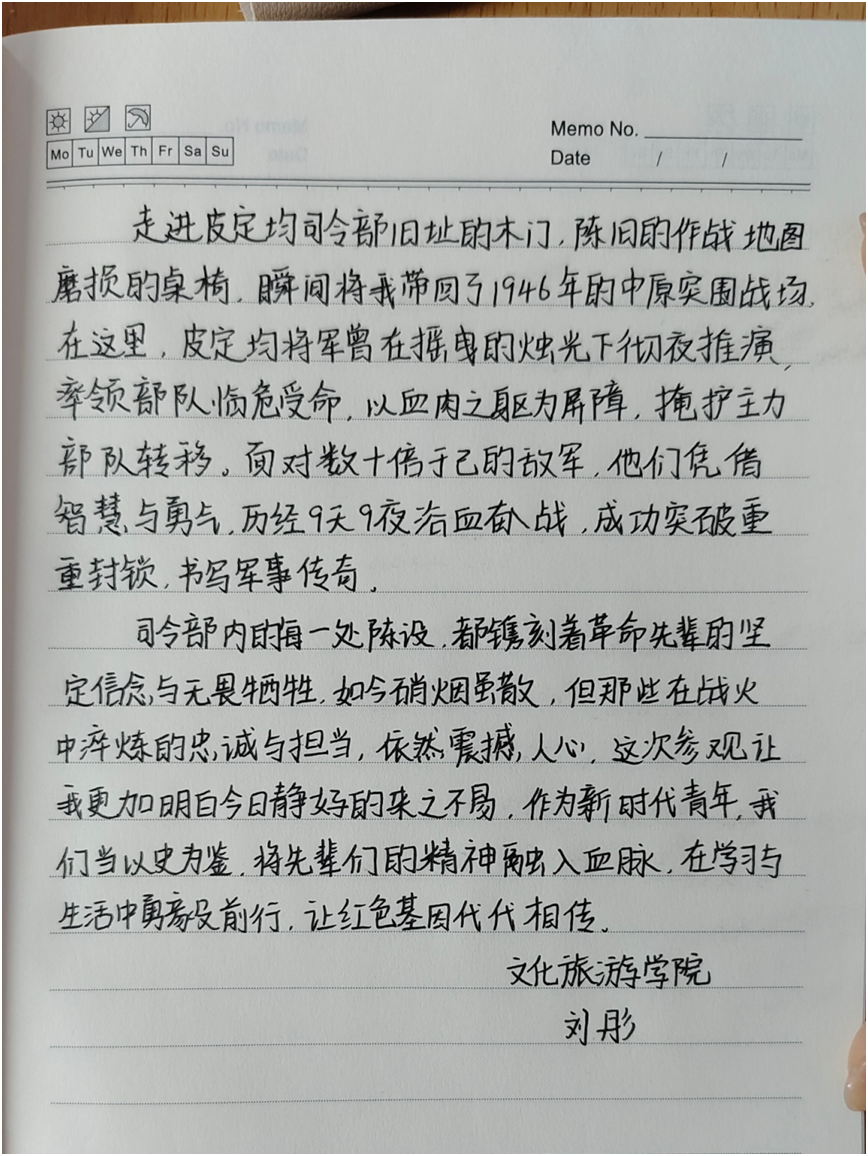 Mo Tu We Th Fr Sa Su
Memo No.
Date / /
走进皮定均司令部旧址的木门，陈旧的作战地图
磨损的桌椅，瞬间将我带回了1946年的中原突围战场，
在这里，皮定均将军曾在摇曳的烛光下彻夜推演，
率领部队临危受命，以血肉之躯为屏障，掩护主力
部队转移。面对数十倍于己的敌军，他们凭借
智慧与勇气，历经9天9夜浴血奋战，成功突破重
重封锁，书写军事传奇。
司令部内的每一处陈设，都镌刻着革命先辈的坚
定信念与无畏牺牲，如今硝烟虽散，但那些在战火
中淬炼的忠诚与担当，依然震撼人心，这次参观让
我更加明白今日静好的来之不易，作为新时代青年，我
们当以史为鉴，将先辈们的精神融入血脉，在学习与
生活中勇毅前行，让红色基因代代相传。
文化旅游学院
刘彤